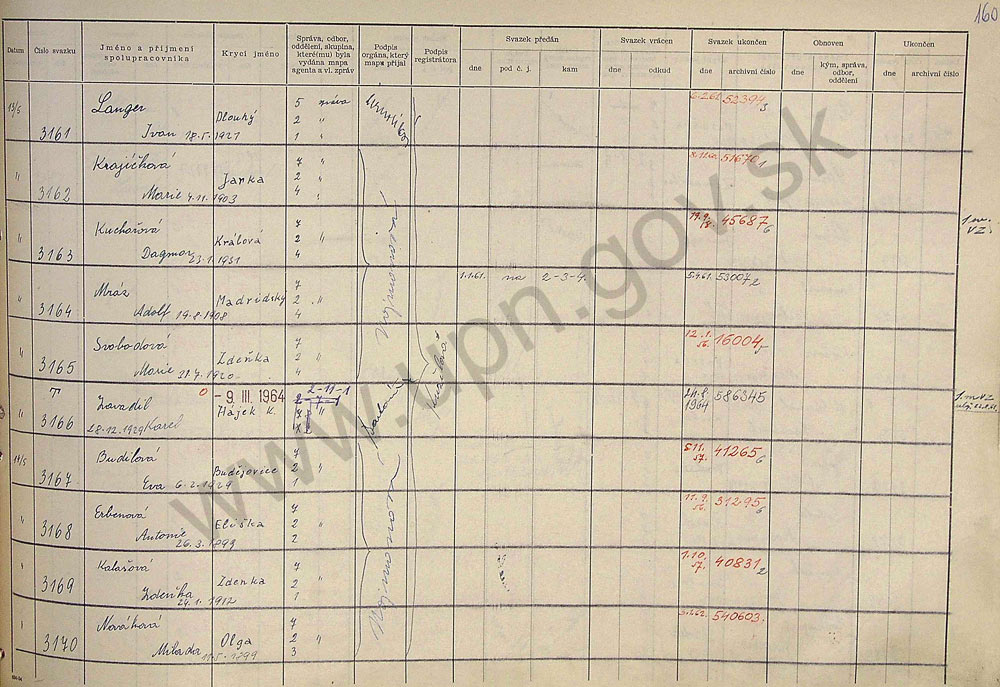 160
Datum Číslo svazku Jméno a příjmení spolupracovníka Krycí jméno Správa, odbor, oddělení, skupina, které(mu) byla vydána mapa agenta a vl. zpráv Podpis orgána, který mapa přijal Podpis registrátora Svazek předán Svazek vrácen Svazek ukončen Obnoven Ukončen
dne pod č. j. kam dne odkud dne archivní číslo dne kým, správa, odbor, oddělení dne archivní číslo
13/5 3161 Langer Ivan 18.5.1927 Dlouhý 5 správa 2 " 1 " 52399/3
" 3162 Krajíčková Marie 4.11.1903 Jarka 7 " 2 " 4 " 51670/1
" 3163 Kuchařová Dagmar 23.1.1931 Králová 7 2 " 4 45687/6
" 3164 Mráz Adolf 19.8.1908 Madridský 7 2 " 4 1.1.61. na 2-3-4. 5.4.61. 53007/2
" 3165 Svobodová Marie 31.7.1920 Zdeňka 7 2 " 4 12.1.56. 16004/5
" 3166 T Zavadil 28.12.1929 Karel - 9. III. 1964 Hájek K. 2-11-1 24.8. 1964 586345
14/5 3167 Budilová Eva 6.2.1929 Budějovice 7 2 " 1 8.11.57. 41265/6
" 3168 Erbenová Antonie 26.3.1899 Eliška 7 2 " 2 11.9.56. 31295/6
" 3169 Kalašová Zdeňka 24.1.1912 Zdenka 7 2 " 1 1.10.57. 40831/2
3170 Nováková Milada 11.5.1899 Olga 7 2 " 3 540603.
www.upn.gov.sk